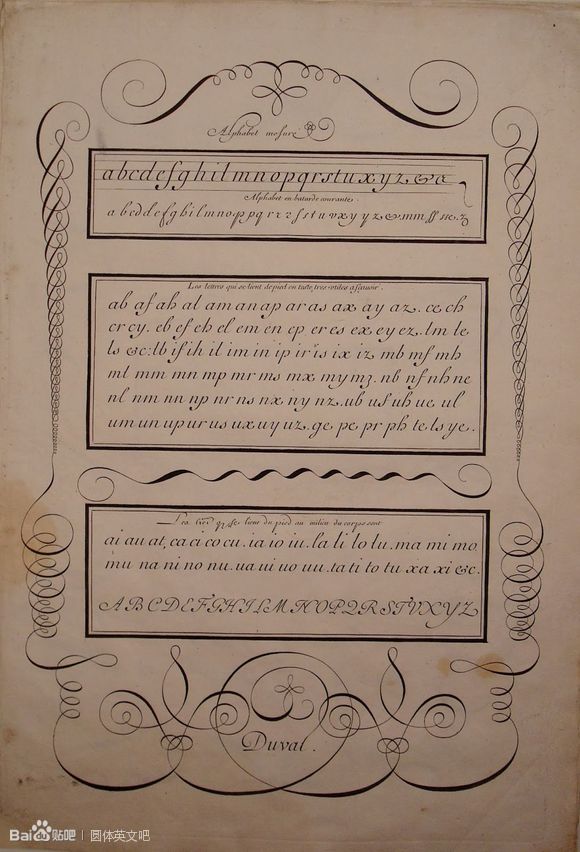 Alphabet mesuré
abcdefghilmnopqrstuxyz &c
Alphabet en batarde courante.
a bcddefghilmnoppqrr2sstuvxyyz &mm ff ss e.z
Les lettres qui se lient de pied en taste, tres-utiles a scauoir.
ab af ah al am an ap ar as ax ay az. ce ch
cr cy. eb ef eh el em en ep er es ex ey ez. lm le
ls &c: lb if ih il im in ip ir is ix iz mb mf mh
ml mm mn mp mr ms mx my mz. nb nf nh ne
nl nm nn np nr ns nx ny nz. ub uf uh ue ul
um un up ur us ux uy uz. ge pe pr ph te ls ye.
Les liens qui se lient du pied au milieu du corps sont
ai au at, ca ci co cu. ia io iu. la li lo lu. ma mi mo
mu na ni no nu. ua ui uo uu. ta ti to tu xa xi &c.
ABCDEFGHILMNOPQRSTVXYZ
Duval.
Bai du 贴吧 | 圆体英文吧